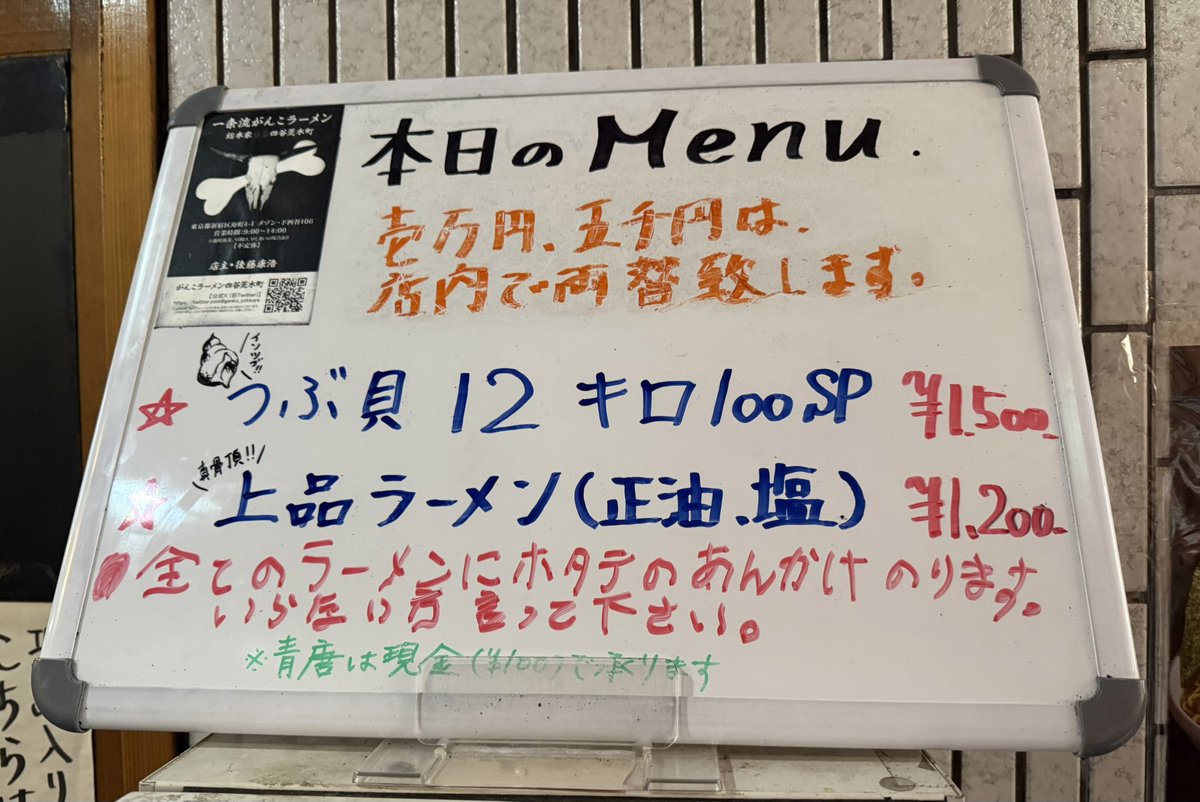 一条流がんこラーメン
総本家 四谷荒木町
東京都新宿区舟町4-1 メゾン・ド四谷106
営業時間:9:00〜14:00
【不定休】
店主・後藤康浩
がんこラーメン四谷荒木町
【公式X(旧Twitter)】
本日のMenu.
壱万円、五千円は、
店内で両替致します。
インツブ!!
☆ つぶ貝 12 キロ100,SP ¥1,500-
真骨頂!!
☆ 上品ラーメン(正油、塩) ¥1,200-
全てのラーメンにホタテのあんかけ のります。
いらない方 言って下さい。
※青唐は現金(¥100)で承ります
入り
こちらは